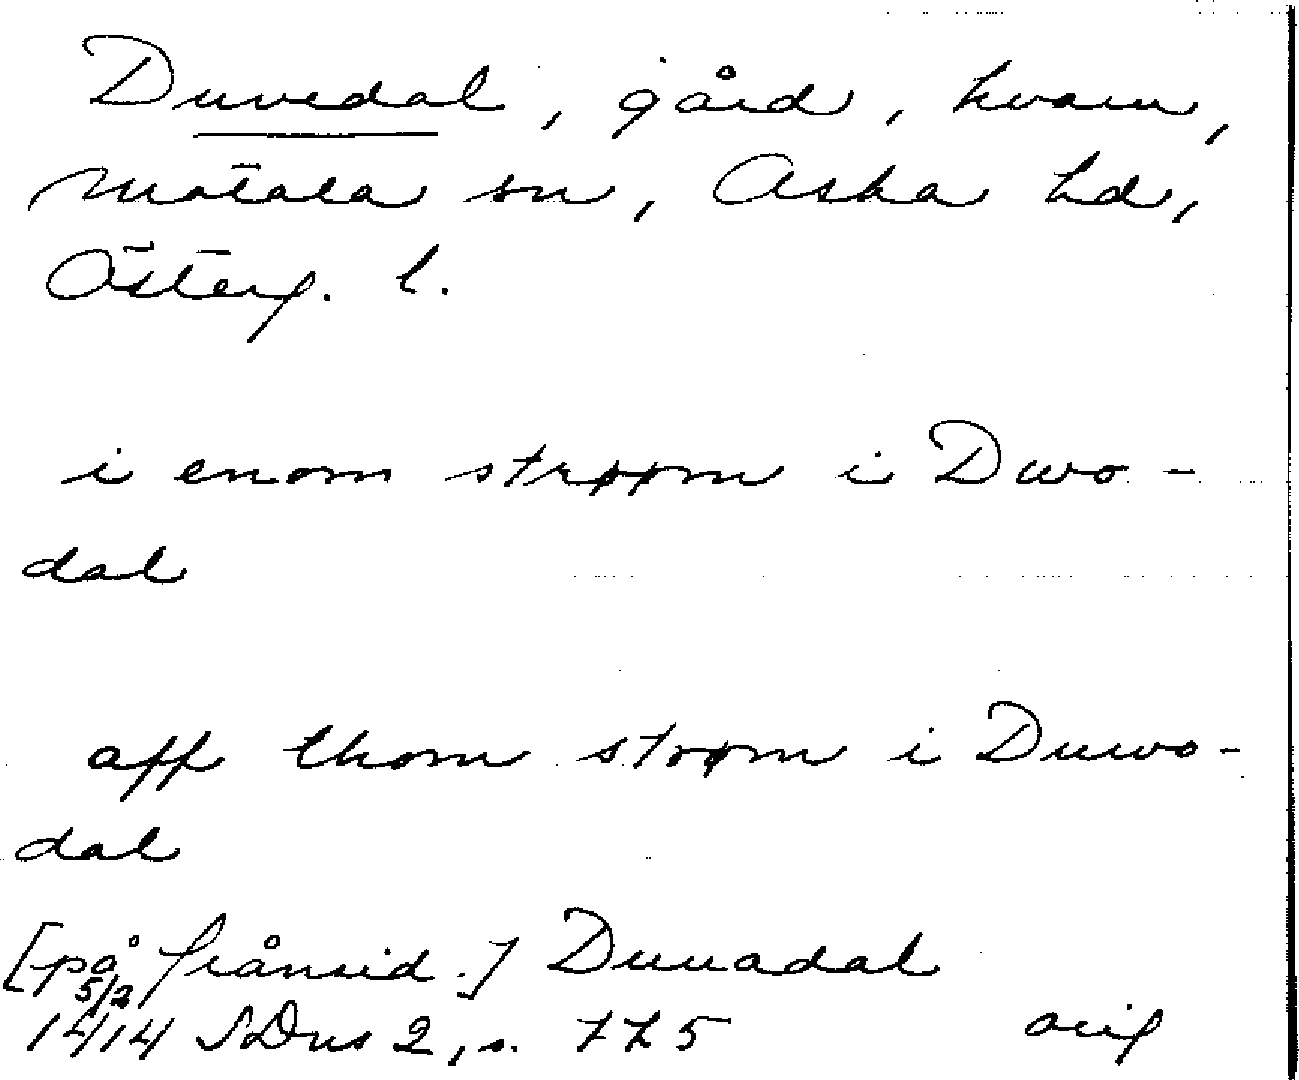 Duvedal, gård, kvarn,
Motala sn, Aska hd,
Österg. l.
i enom strøøm i Dwo-
dal
aff thom strøm i Duwo-
dal
[på frånsid.] Duuadal
5/2
1414 SDns 2, s. 775 orig